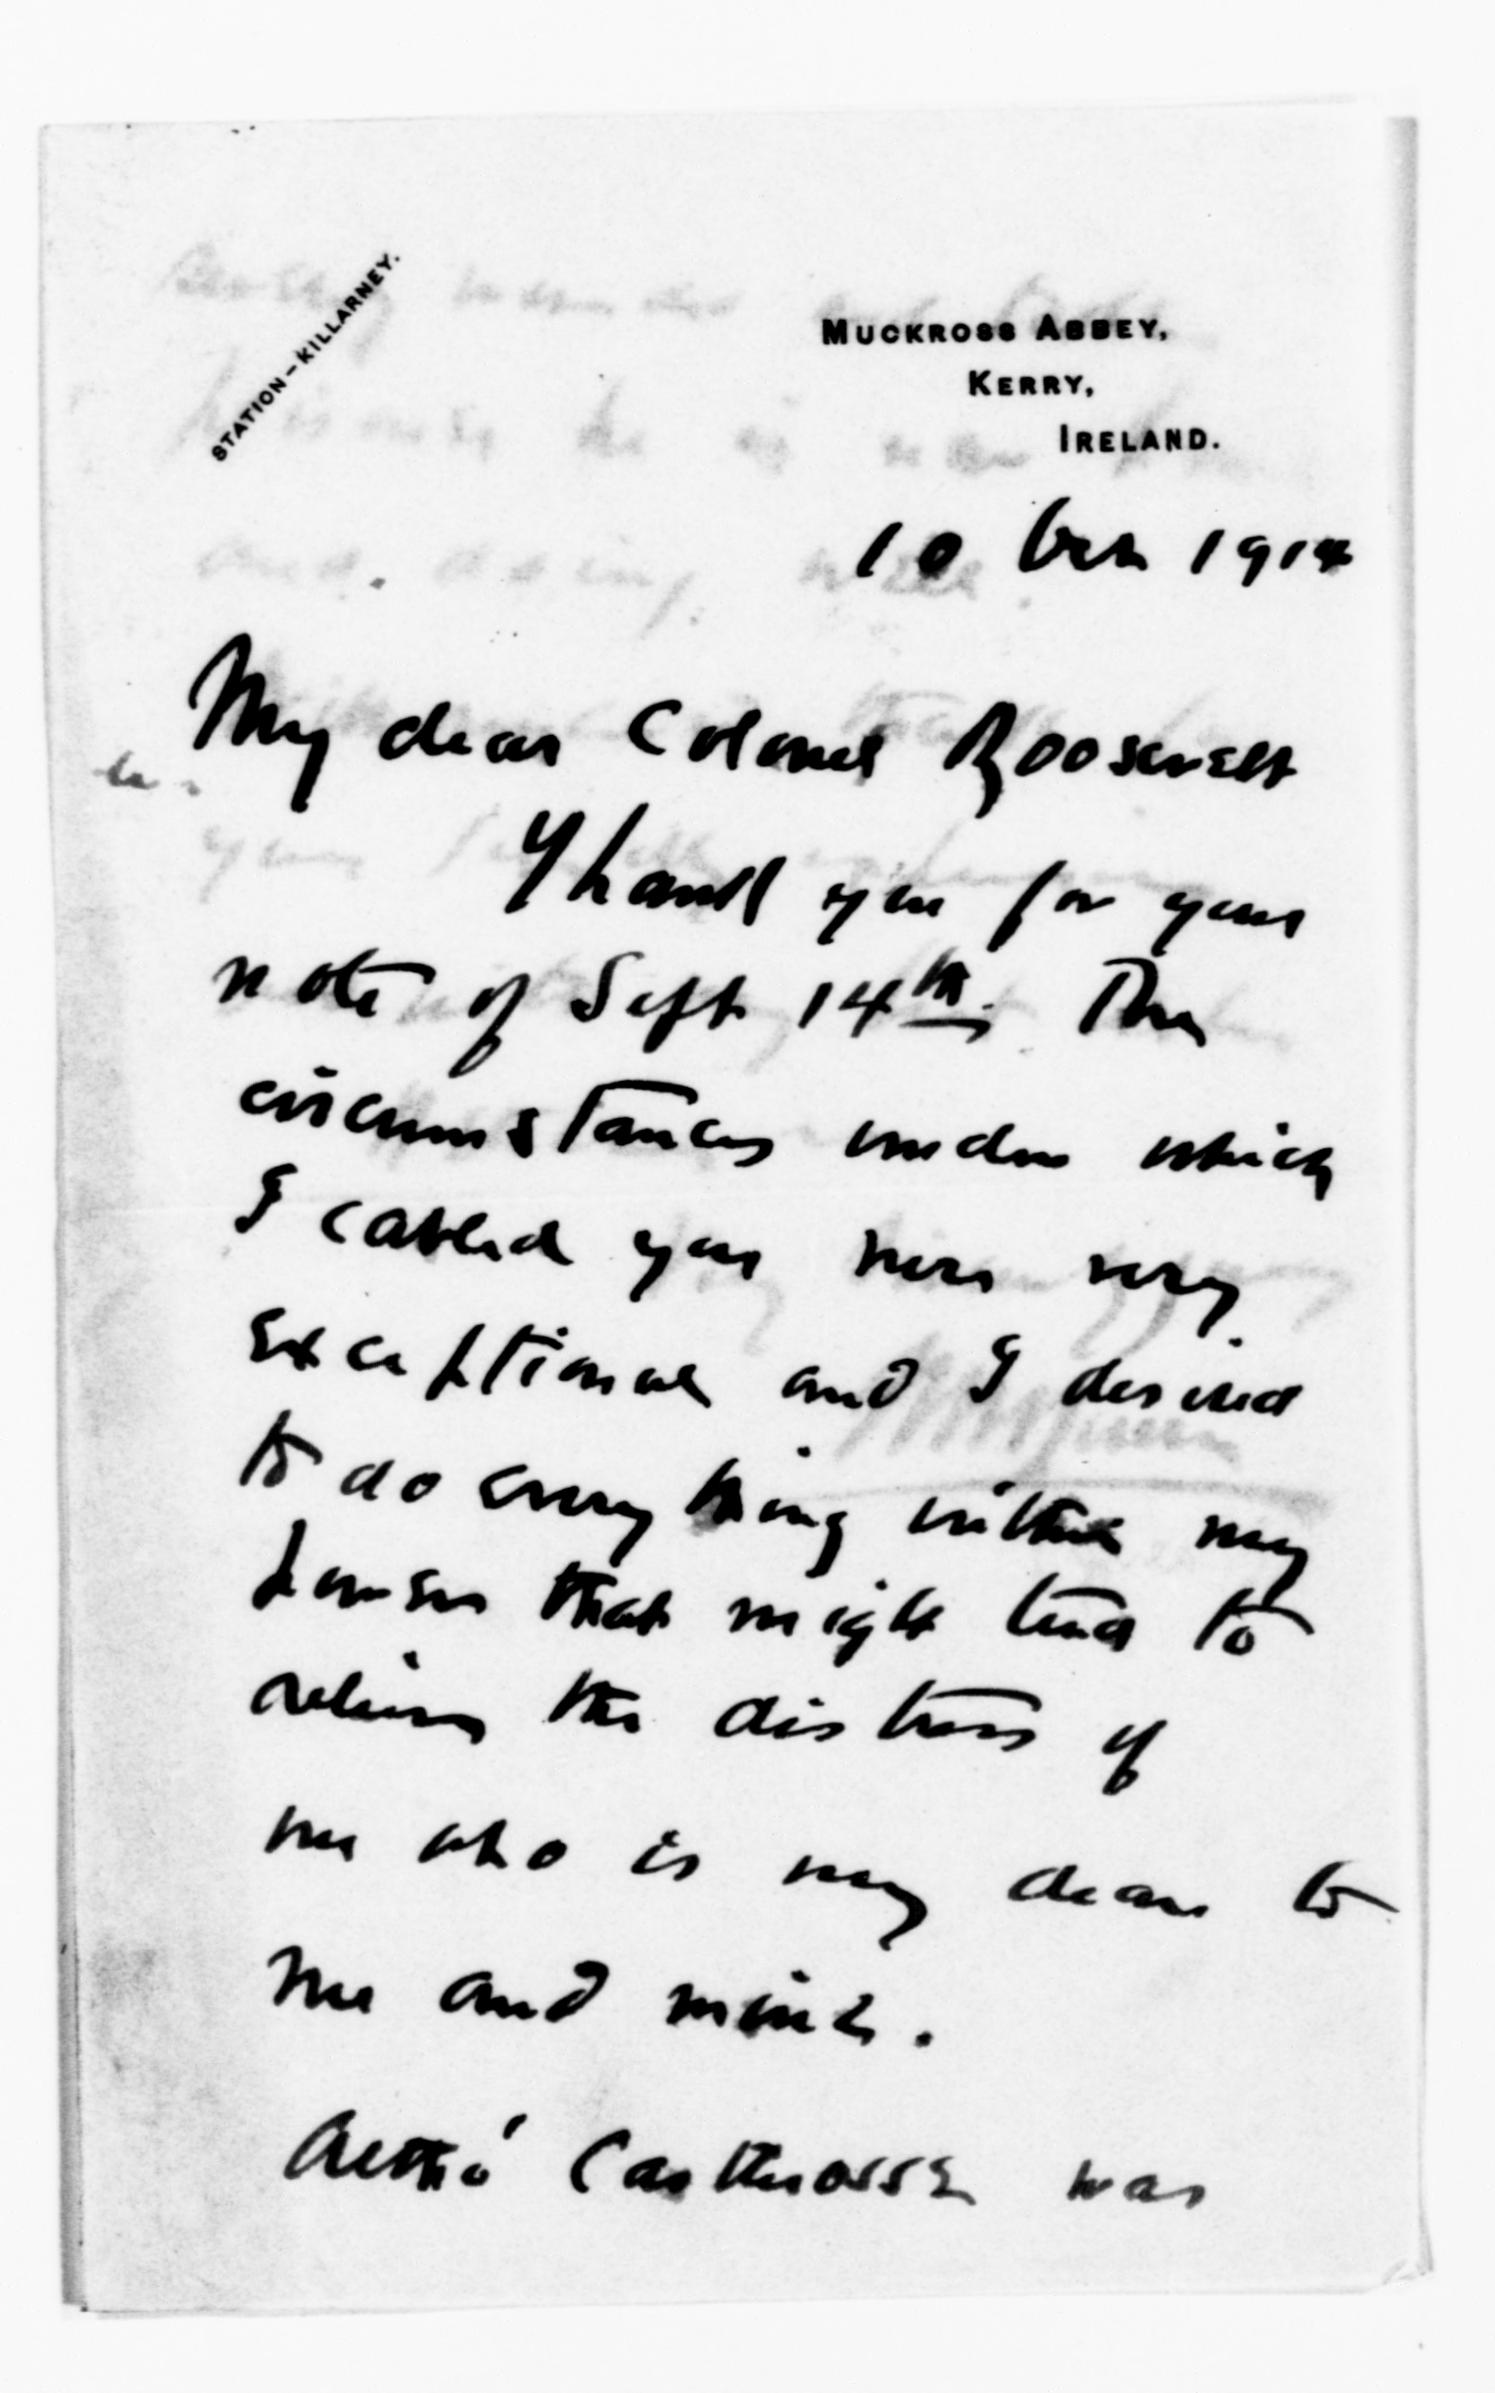 STATION-KILLARNEY.
MUCKROSS ABBEY,
KERRY,
IRELAND.
10 Oct 1914
My dear Colonel Roosevelt
Thank you for your
note of Sept 14th. The
circumstances under which
I cabled you were very
exceptional and I desired
to do everything within my
power that might tend to
relieve the distress of
one who is very dear to
me and mine.
Altho' Castlerosse was